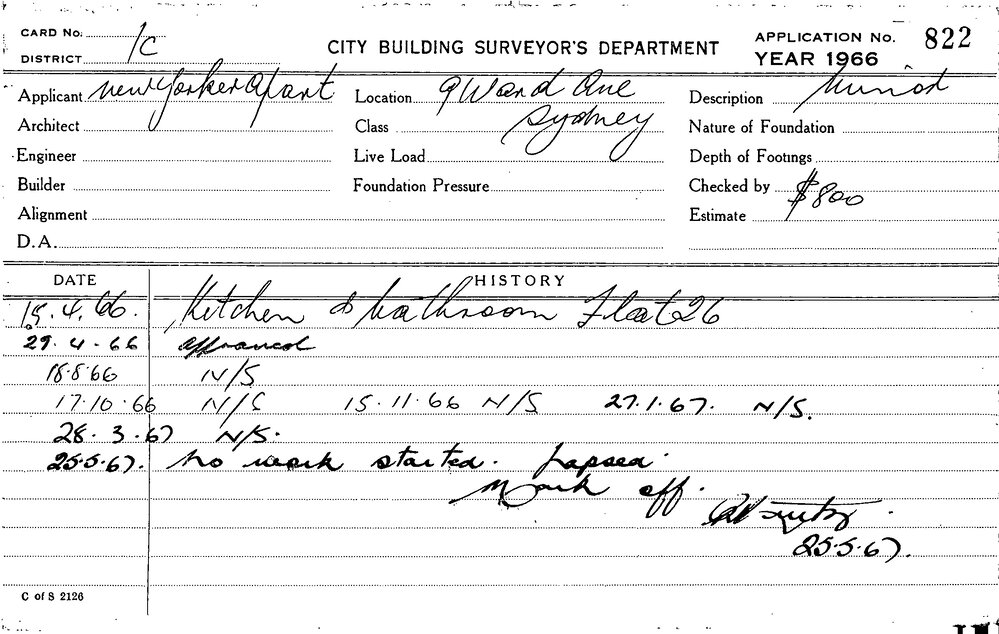 CARD No.
DISTRICT 1C
CITY BUILDING SURVEYOR'S DEPARTMENT
APPLICATION No. 822
YEAR 1966
Applicant New Yorker Apart
Location 9 Ward Ave
Sydney
Description
Architect
Class
Nature of Foundation
Engineer
Live Load
Depth of Footings
Builder
Foundation Pressure
Checked by
Alignment
Estimate $800
D.A.
DATE HISTORY
15.4.66. Kitchen & bathroom Flat 26
29.4.66 approved
18.8.66 N/S
17.10.66 N/S 15.11.66 N/S 27.1.67. N/S.
28.3.67 N/S.
25.5.67. No work started. Lapsed.
Mark off.
25.5.67.
C of S 2126